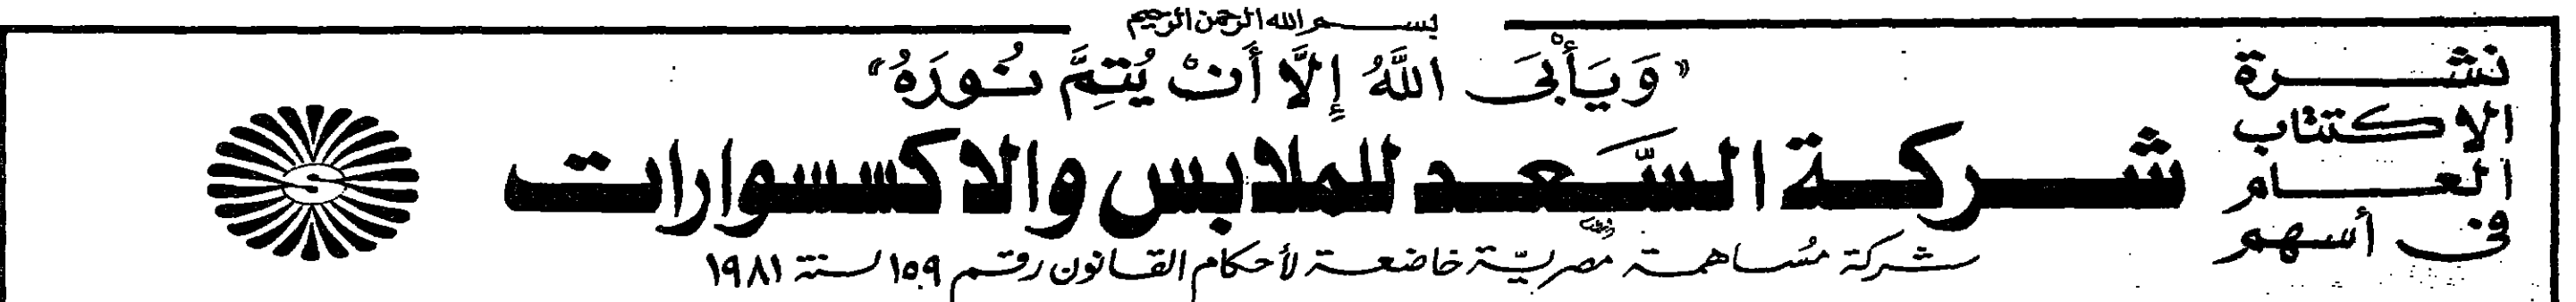 بسم الله الرحمن الرحيم
"وَيَأْبَى اللَّهُ إِلَّا أَنْ يُتِمَّ نُورَهُ"
نشرة
الاكتتاب
العام
فى أسهم
شركة السَّعد للملابس والاكسسوارات
شركة مُساهمة مصريّة خاضعة لأحكام القانون رقم ١٥٩ لسنة ١٩٨١